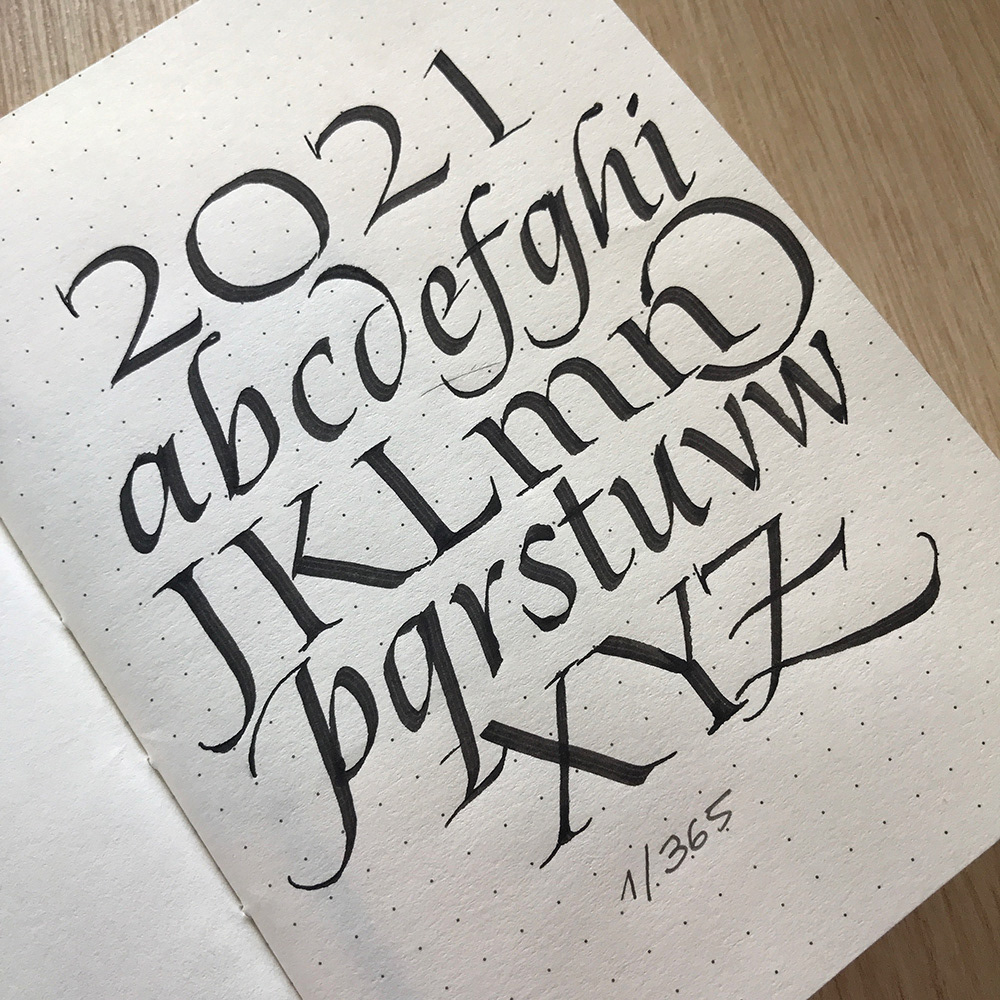 2021
abcdefghi
JKLmnO
pqrstuvw
XYZ
1/365